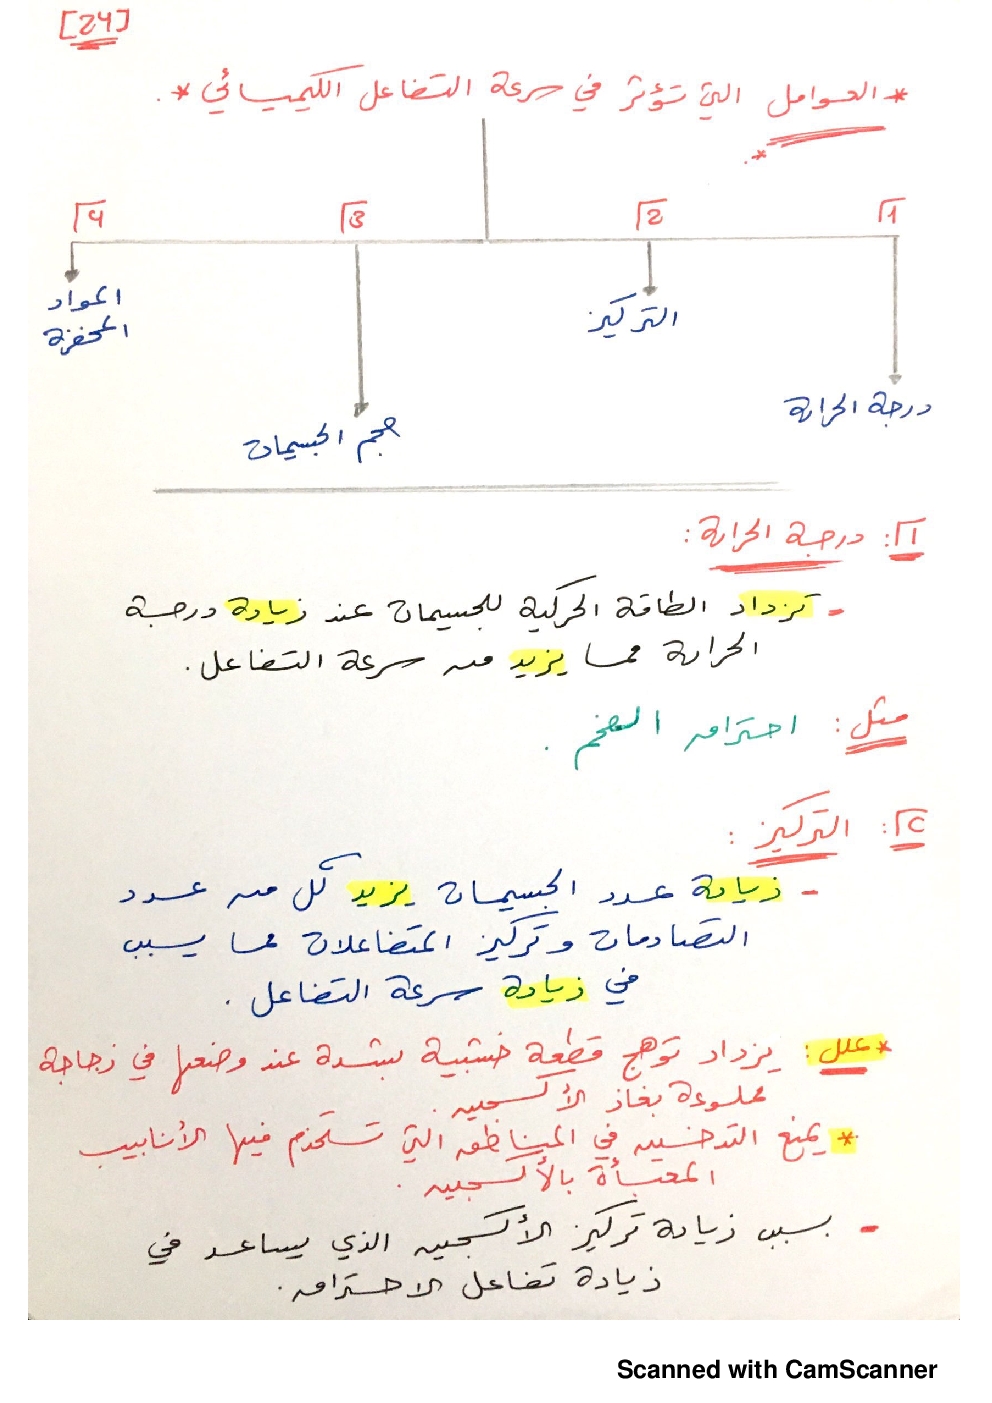 [24]
* العوامل التي تؤثر في سرعة التفاعل الكيميائي *.
*.
1
2
3
4
درجة الحرارة
التركيز
حجم الجسيمات
المواد
المحفزة
1: درجة الحرارة:
- تزداد الطاقة الحركية للجسيمات عند زيادة درجة
الحرارة مما يزيد من سرعة التفاعل.
مثل: احتراق الفحم.
٢: التركيز:
- زيادة عدد الجسيمات يزيد كل من عدد
التصادمات وتركيز المتفاعلات مما يسبب
في زيادة سرعة التفاعل.
* علل: يزداد توهج قطعة خشبية بشدة عند وضعها في زجاجة
مملوءة بغاز الأكسجين.
* يمنع التدخين في المناطق التي تستخدم فيها الأنابيب
المعبأة بالأكسجين.
- بسبب زيادة تركيز الأكسجين الذي يساعد في
زيادة تفاعل الاحتراق.
Scanned with CamScanner